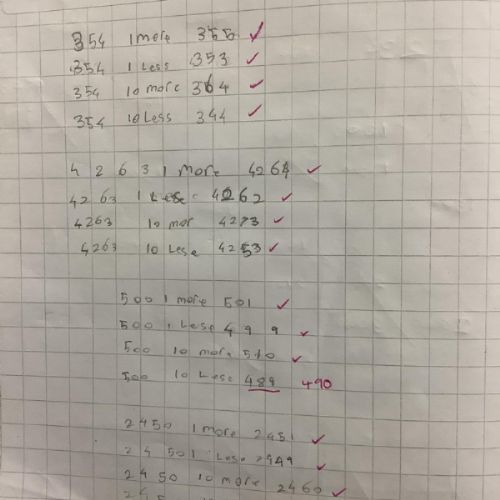 354 1 more 355 ✓
354 1 Less 353 ✓
354 10 more 364 ✓
354 10 Less 344 ✓
4 2 6 3 1 more 4264 ✓
4263 1 Lese 4262 ✓
4263 10 mor 4273 ✓
4263 10 Lese 4253 ✓
500 1 more 501 ✓
500 1 Lese 499 ✓
500 10 more 510 ✓
500 10 Lese 489 490
2450 1 more 2451 ✓
2450 1 Lese 2449 ✓
2450 10 more 2460 ✓